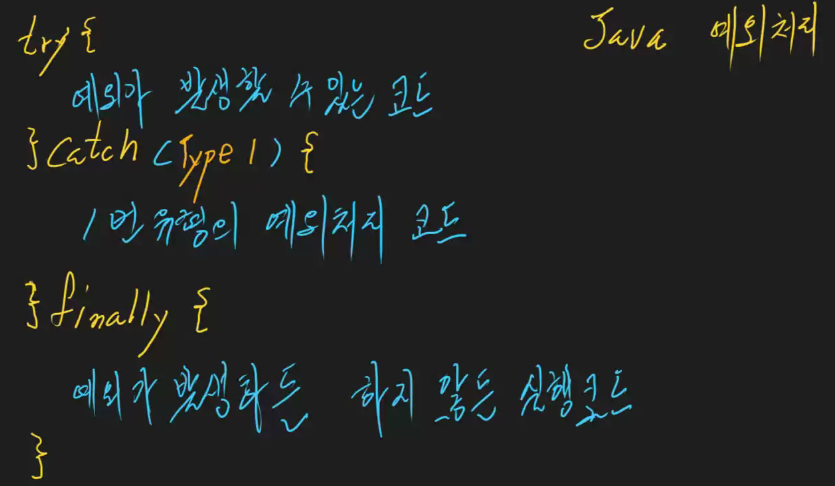 Java 예외처리
try {
예외가 발생할 수 있는 코드
} Catch (Type 1) {
1번 유형의 예외처리 코드
} finally {
예외가 발생하든 하지 않든 실행코드
}